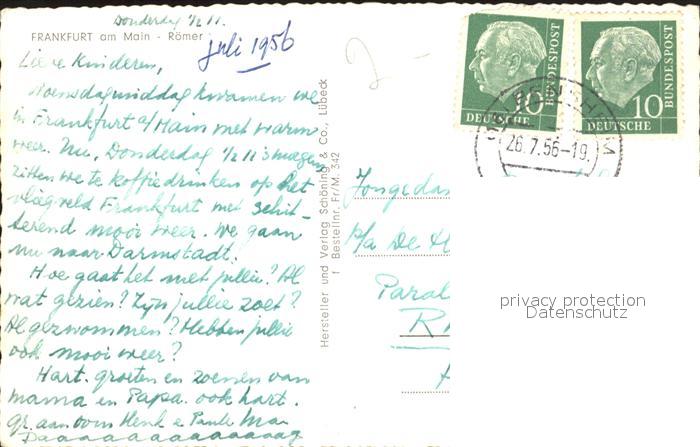 Donderdag ½ 11.
FRANKFURT am Main - Römer
juli 1956
Lieve Kinderen,
Woensdagmiddag kwamen we
in Frankfurt a/Main met warm
weer. Nu, Donderdag ½ 11 's morgens
zitten we te koffiedrinken op het
vliegveld Frankfurt met schit-
terend mooi weer. We gaan
nu naar Darmstadt.
Hoe gaat het met jullie? Al
wat gezien? Zijn jullie zoet?
Al gezwommen? Hebben jullie
ook mooi weer?
Hart. groeten en zoenen van
mama en Papa. ook hart.
gr. aan oom Henk e Tante
Hersteller und Verlag Schöning & Co., Lübeck
Bestellnr. Fr/M. 342
10
DEUTSCHE
BUNDESPOST
10
DEUTSCHE
BUNDESPOST
26.7.56-19
Jongeda
p/a De
Paral
privacy protection
Datenschutz